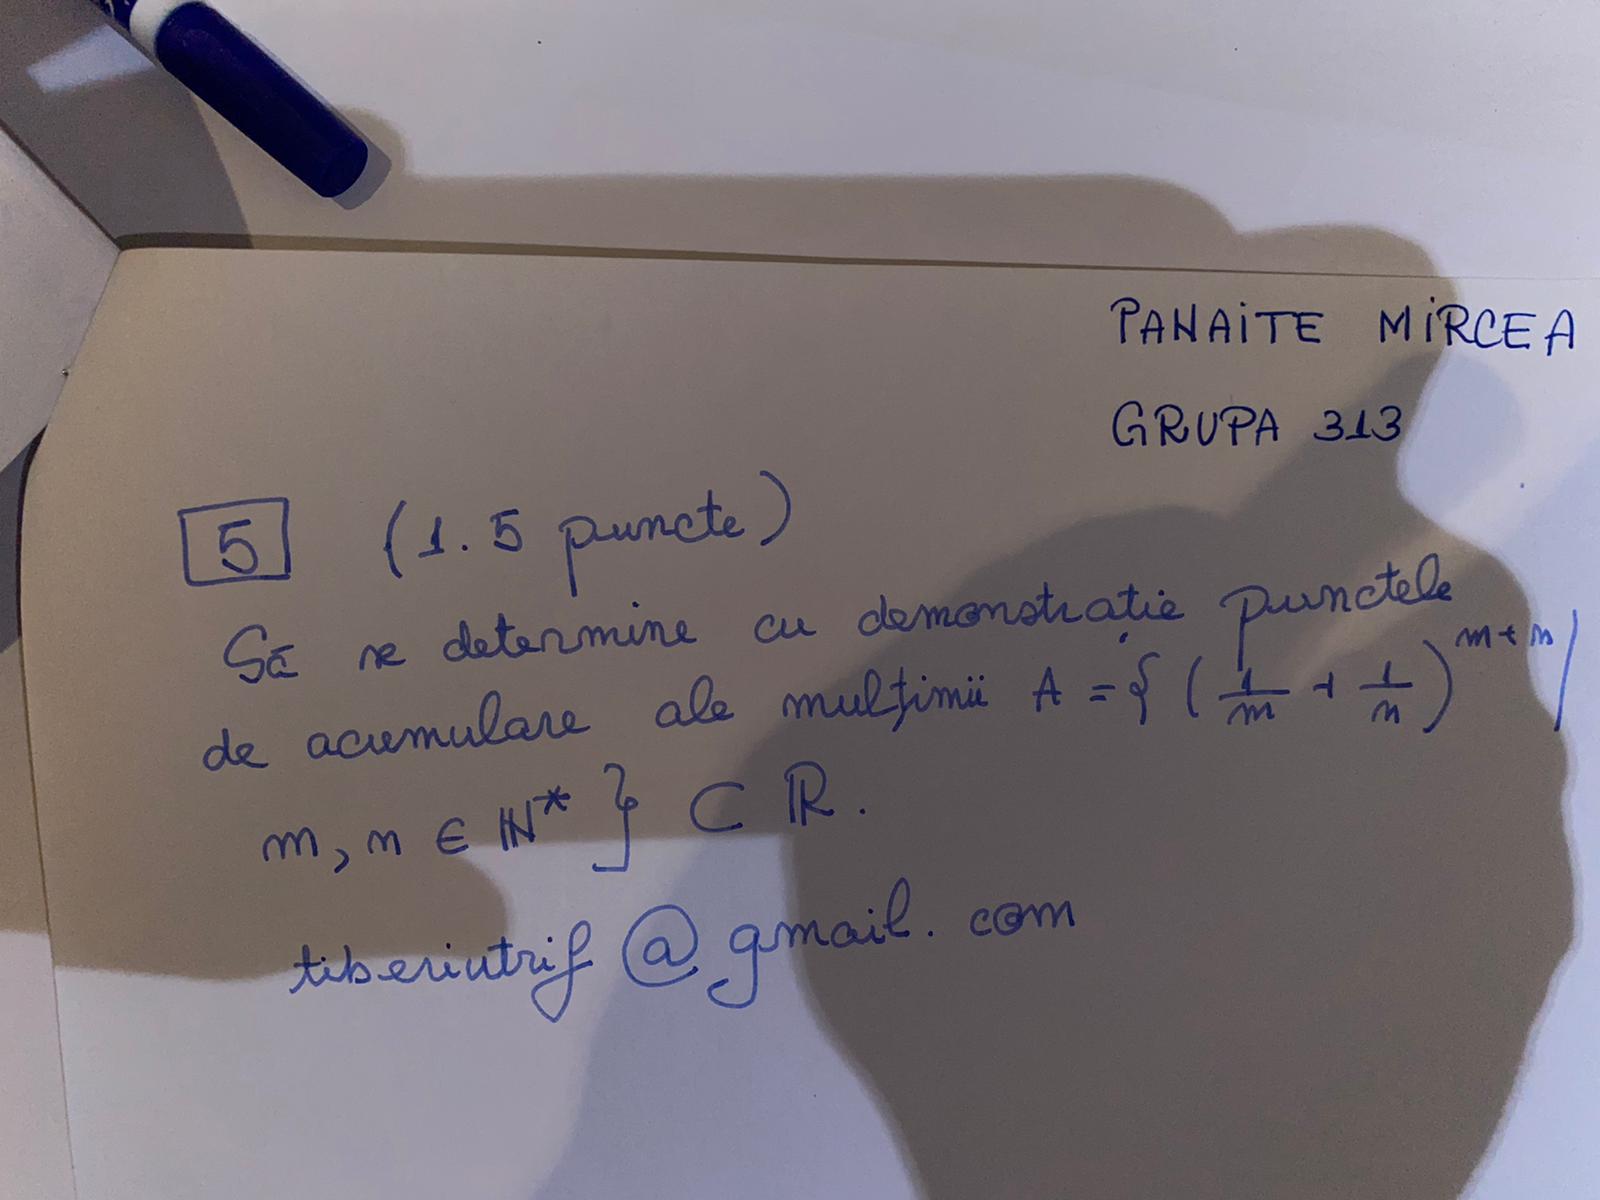 PANAITE MIRCEA
GRUPA 313
5 (1.5 puncte)
Să se determine cu demonstrație punctele
de acumulare ale mulțimii A = { (1/m + 1/n)^{m+n} |
m, n ∈ ℕ* } ⊂ ℝ.
tiberiutrif@gmail.com